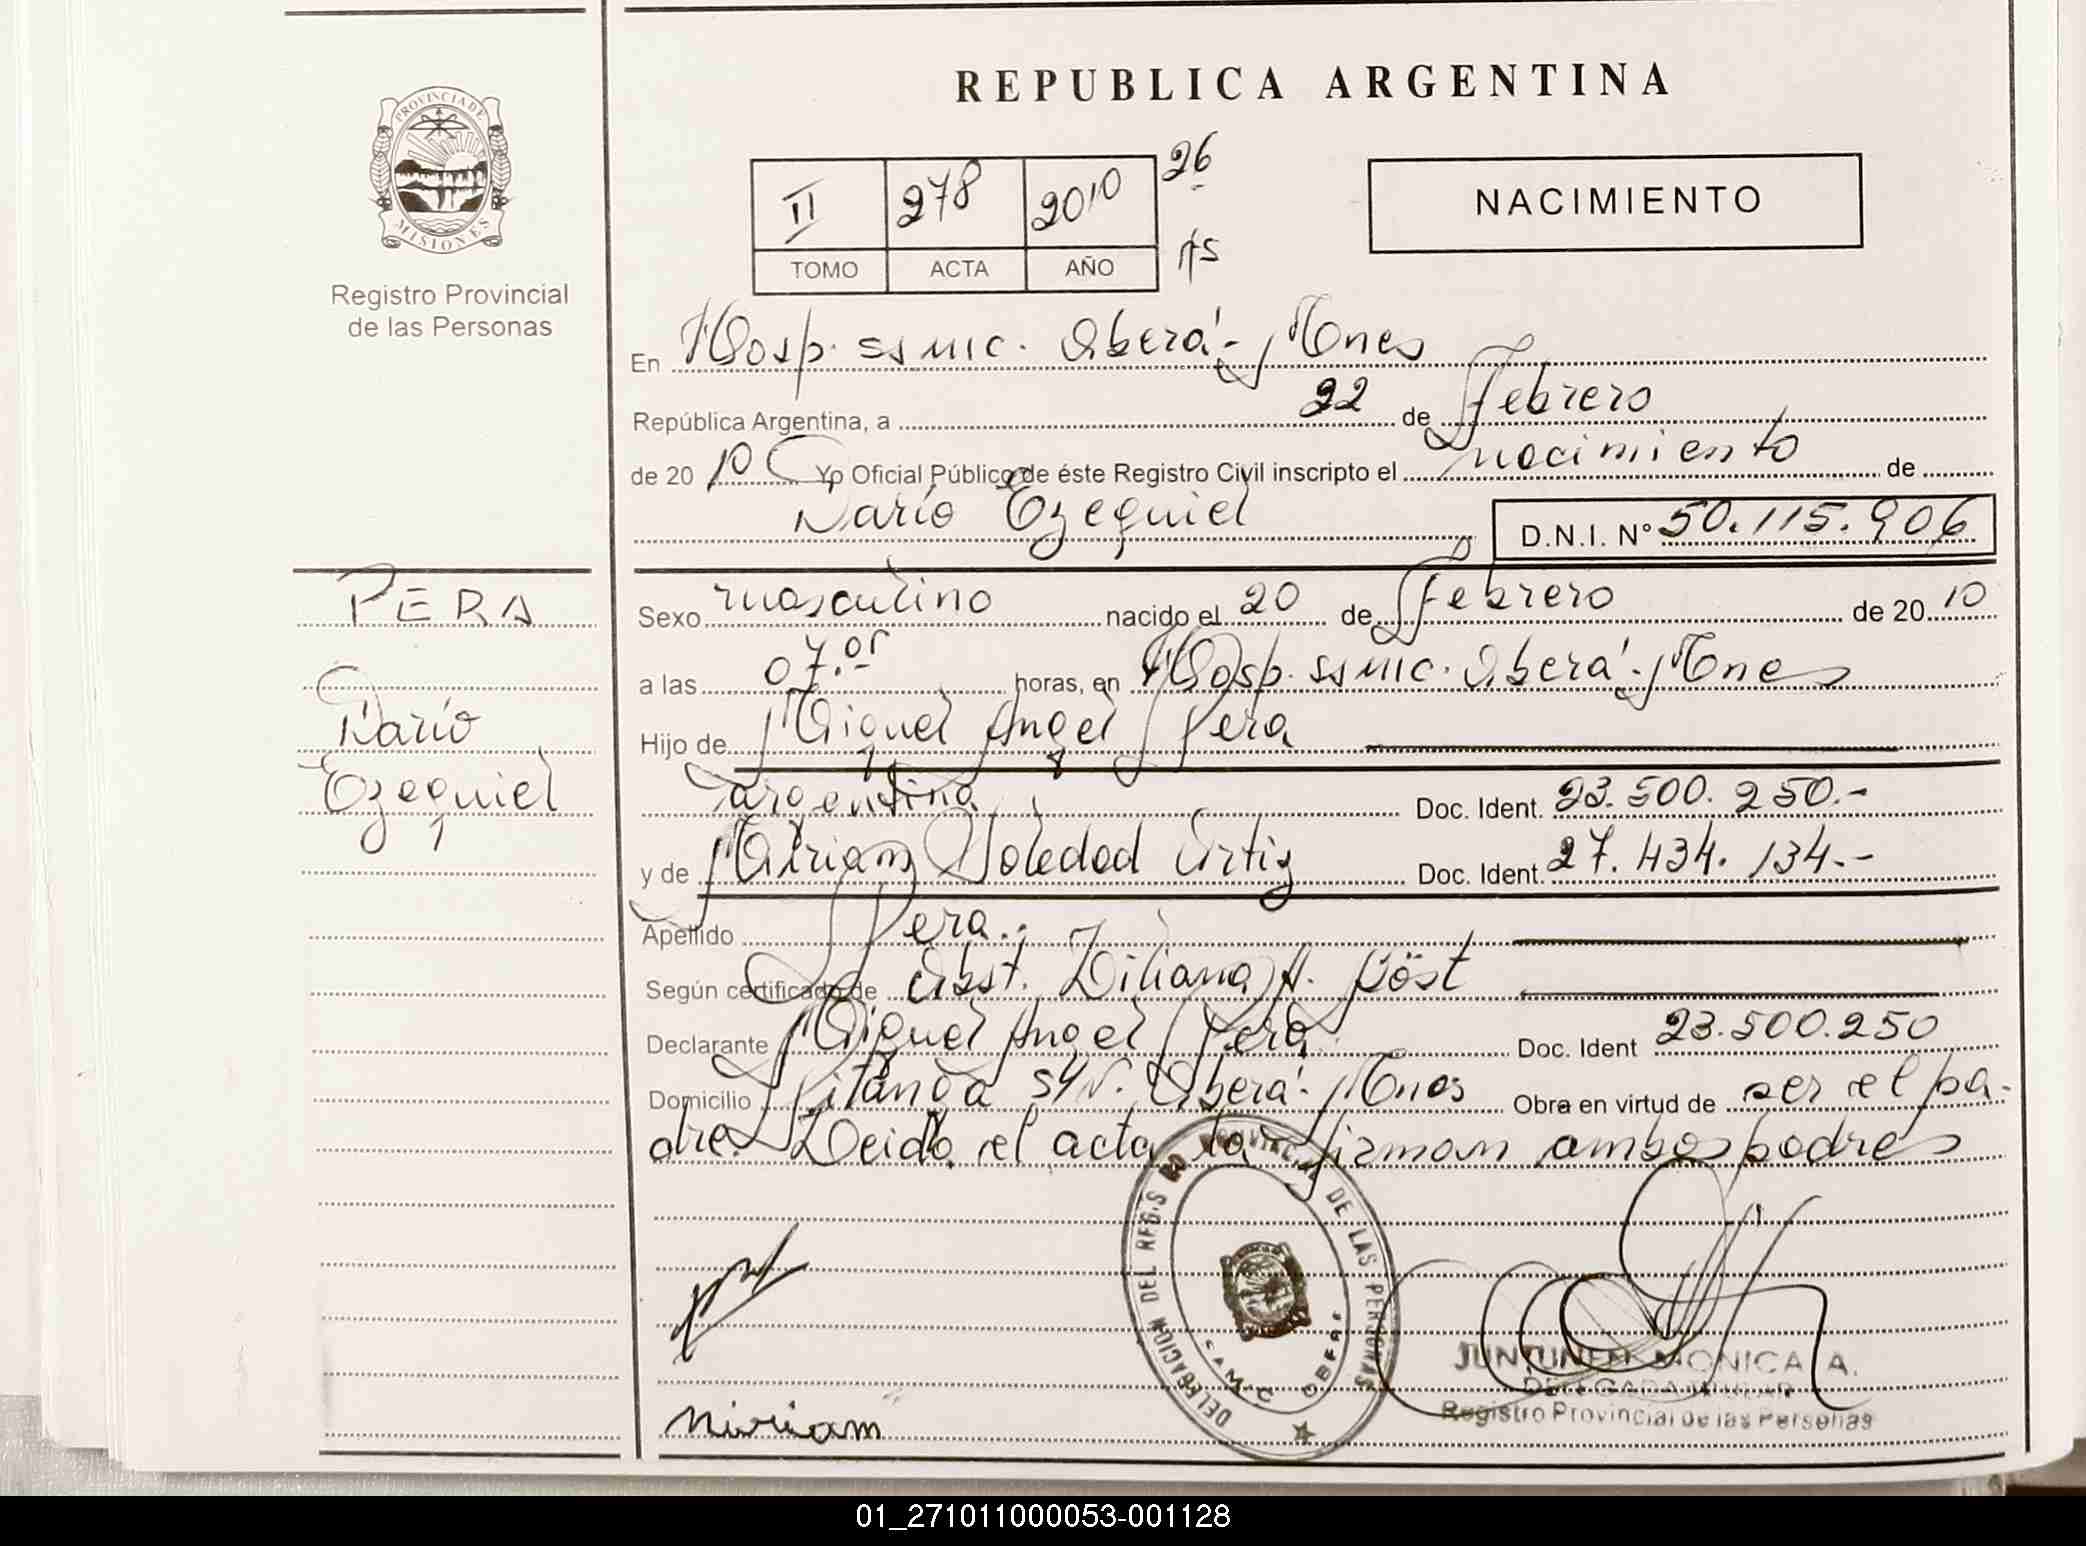 REPUBLICA ARGENTINA
PROVINCIA DE
MISIONES
Registro Provincial
de las Personas
II 278 2010 26
TOMO ACTA AÑO
NACIMIENTO
En Hosp. ssmic. Oberá - Mnes
República Argentina, a 22 de Febrero
de 20 10 Yo Oficial Público de éste Registro Civil inscripto el nacimiento de
Darío Ezequiel D.N.I. N° 50.115.906
PERA
Darío
Ezequiel
Sexo masculino nacido el 20 de Febrero de 20 10
a las 07. horas, en Hosp. ssmic. Oberá - Mnes
Hijo de Miguel Angel Pera
argentina Doc. Ident. 23.500.250.-
y de Miriam Soledad Ortiz Doc. Ident. 27.434.134.-
Apellido Pera.
Según certificado de Obst. Liliana A. Köst
Declarante Miguel Angel Pera Doc. Ident 23.500.250
Domicilio Pitanga S/N. Oberá - Mnes Obra en virtud de ser el pa-
dre. Leida el acta la firman ambos padres
DELEGACION DEL REGIS RO PROVINCIAL DE LAS PERSONAS
SAMIC OBERA
Miriam
JUNTUNEN MONICA A.
DELEGADA TITULAR
Registro Provincial de las Personas
01_271011000053-001128